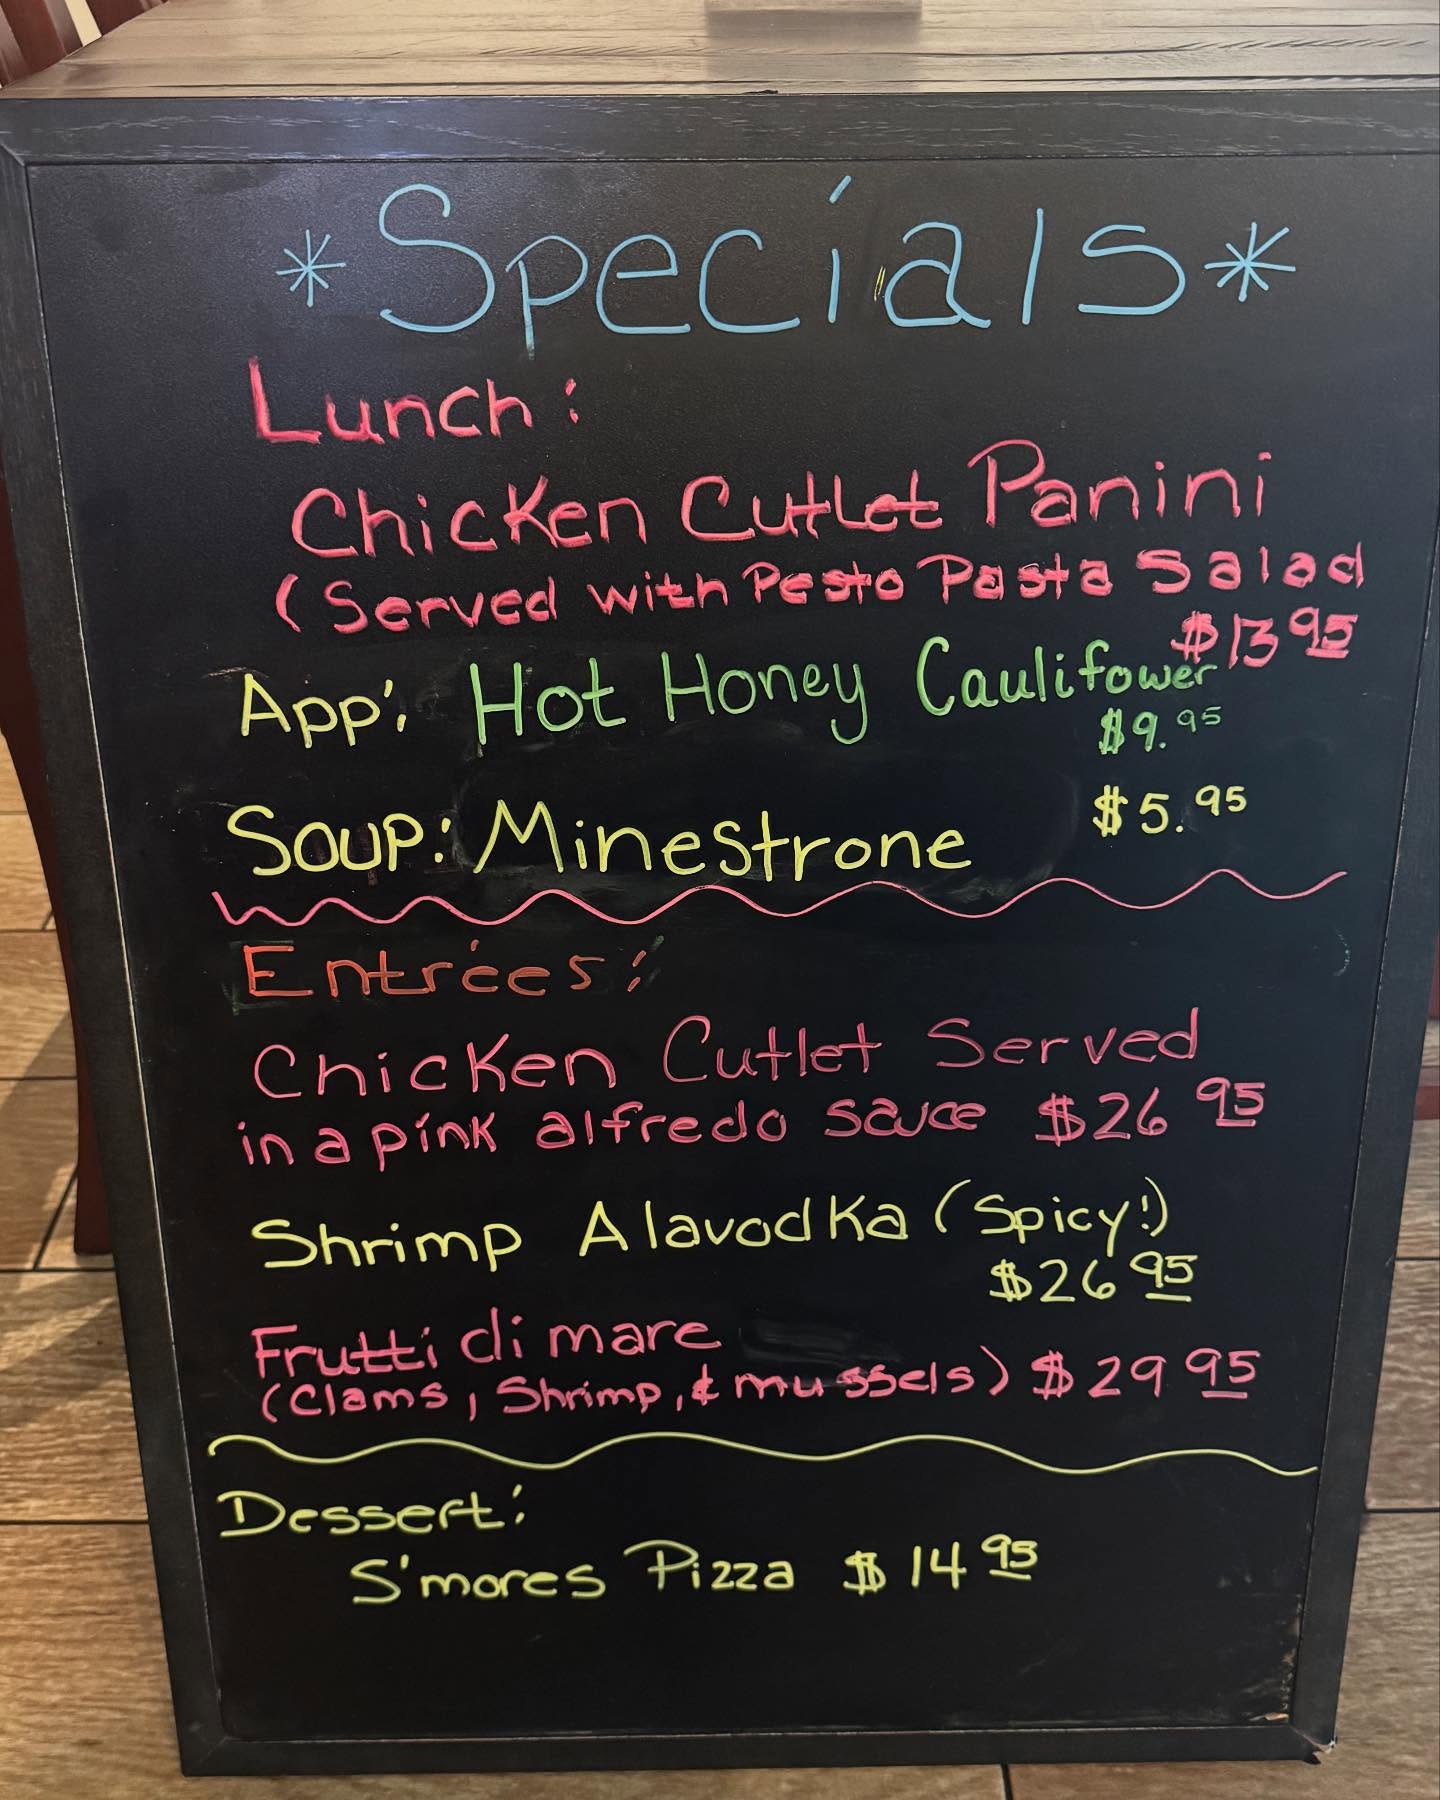 *Specials*
Lunch:
Chicken Cutlet Panini
(Served with Pesto Pasta Salad
$13 95
App: Hot Honey Caulifower
$9.95
Soup: Minestrone $5.95
Entrées:
Chicken Cutlet Served
in a pink alfredo sauce $26 95
Shrimp Alavodka (Spicy!)
$26 95
Frutti di mare
(Clams, Shrimp, & mussels) $29 95
Dessert:
S'mores Pizza $14 95